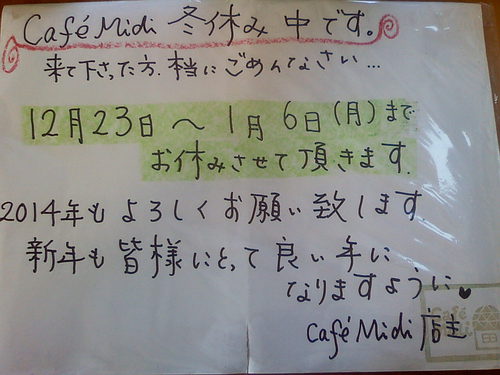 Café Midi 冬休み中です。
来て下さった方、本当にごめんなさい…
12月23日～1月6日(月)まで
お休みさせて頂きます。
2014年もよろしくお願い致します。
新年も皆様にとって良い年に
なりますように♥
Café Midi 店主